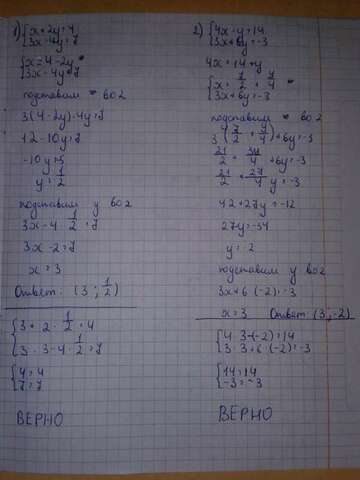 1) {x + 2y = 4
{3x - 4y = 7
{x = 4 - 2y *
{3x - 4y = 7
подставим * во 2
3(4 - 2y) - 4y = 7
12 - 10y = 7
-10y = -5
y = 1/2
подставим y во 2
3x - 4 · 1/2 = 7
3x - 2 = 7
x = 3
Ответ: (3 ; 1/2)
{3 + 2 · 1/2 = 4
{3 · 3 - 4 · 1/2 = 7
{4 = 4
{7 = 7
ВЕРНО
2) {4x - y = 14
{3x + 6y = -3
4x = 14 + y
{x = 7/2 + y/4 *
{3x + 6y = -3
подставим * во 2
3(7/2 + y/4) + 6y = -3
21/2 + 3y/4 + 6y = -3
21/2 + 27/4 y = -3
42 + 27y = -12
27y = -54
y = 2
подставим y во 2
3x + 6 (-2) = -3
x = 3 Ответ: (3, -2)
{4 · 3 - (-2) = 14
{3 · 3 + 6 (-2) = -3
{14 = 14
{-3 = -3
ВЕРНО